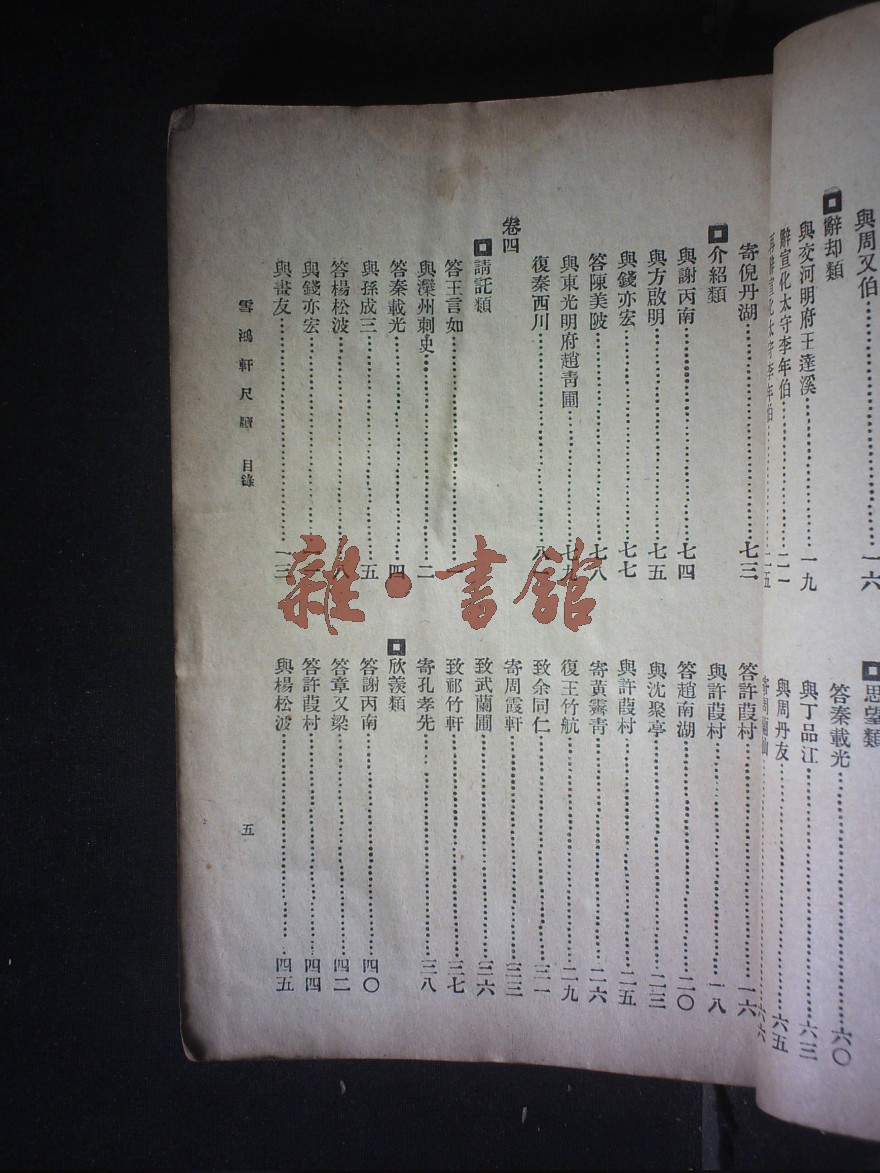 與周又伯……一六
辭却類
與交河明府王達溪……一九
辭宣化太守李年伯……二一
再辭宣化太守李年伯……二五
思望類
答秦載光……六〇
與丁品江……六三
與周丹友……六五
六六
寄倪丹湖……七三
介紹類
與謝丙南……七四
與方啟明……七五
與錢亦宏……七七
答陳美陂……七八
與東光明府趙青圃……七九
復秦西川……八一
卷四
請託類
答王言如……一
與灤州刺史……二
答秦載光……四
與孫成三……五
答楊松波……八
與錢亦宏
與畫友……一三
答許葭村……一六
與許葭村……一八
答趙南湖……二〇
與沈聚亭……二三
與許葭村……二五
寄黃霽青……二六
復王竹航……二九
致余同仁……三一
寄周霞軒……三三
致武蘭圃……三六
致祁竹軒……三七
寄孔孝先……三八
欣羨類
答謝丙南……四〇
答章又梁……四二
答許葭村……四四
與楊松波……四五
雪鴻軒尺牘 目錄
五
雜·書館